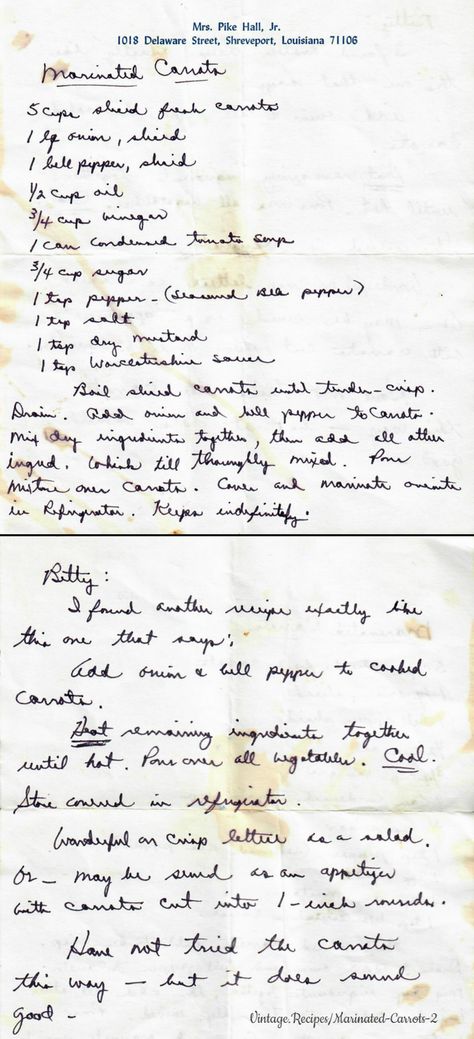 Mrs. Pike Hall, Jr.
1018 Delaware Street, Shreveport, Louisiana 71106
Marinated Carrots
5 cups sliced fresh carrots
1 lg onion, sliced
1 bell pepper, sliced
1/2 cup oil
3/4 cup vinegar
1 can condensed tomato soup
3/4 cup sugar
1 tsp pepper - (seasoned Bell pepper)
1 tsp salt
1 tsp dry mustard
1 tsp Worcestershire sauce
Boil sliced carrots until tender-crisp.
Drain. Add onion and bell pepper to Carrots.
Mix dry ingredients together, then add all other
ingred. Whisk till thoroughly mixed. Pour
mixture over Carrots. Cover and marinate overnite
in Refrigerator. Keeps indefinitely.
Betty:
I found another recipe exactly like
this one that says:
Add onion & bell pepper to cooked
Carrots.
Heat remaining ingredients together
until hot. Pour over all vegetables. Cool.
Store covered in refrigerator.
Wonderful on crisp lettuce as a salad.
Or - may be served as an appetizer
with carrots cut into 1-inch rounds.
Have not tried the carrots
this way - but it does sound
good -
Vintage.Recipes/Marinated-Carrots-2